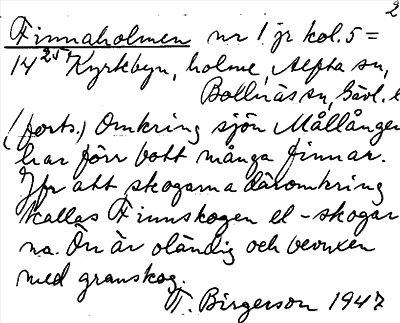 2
Finnaholmen nr 1 jr kol. 5 =
14 257 Kyrkbyn, holme, Alfta sn,
Bollnäs sn, Gävl. l
(forts.) Omkring sjön Mållången
har förr bott många finnar.
Jfr att skogarna däromkring
kallas Finnskogen el -skogar
na. Ön är oländig och bevuxen
med granskog.
T. Birgerson 1947